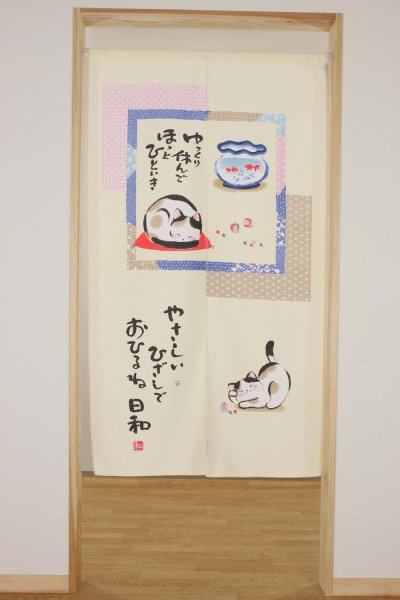 ゆっくり
休んで
ほっと
ひといき
やさしい
ひざしで
おひるね 日和